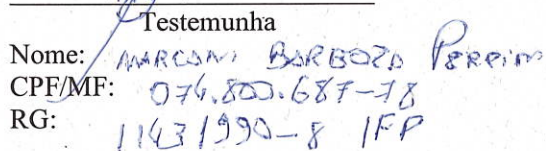 Testemunha
Nome: MARCONI BARBOZA PEREIRA
CPF/MF: 074.800.687-78
RG: 11431990-8 IFP